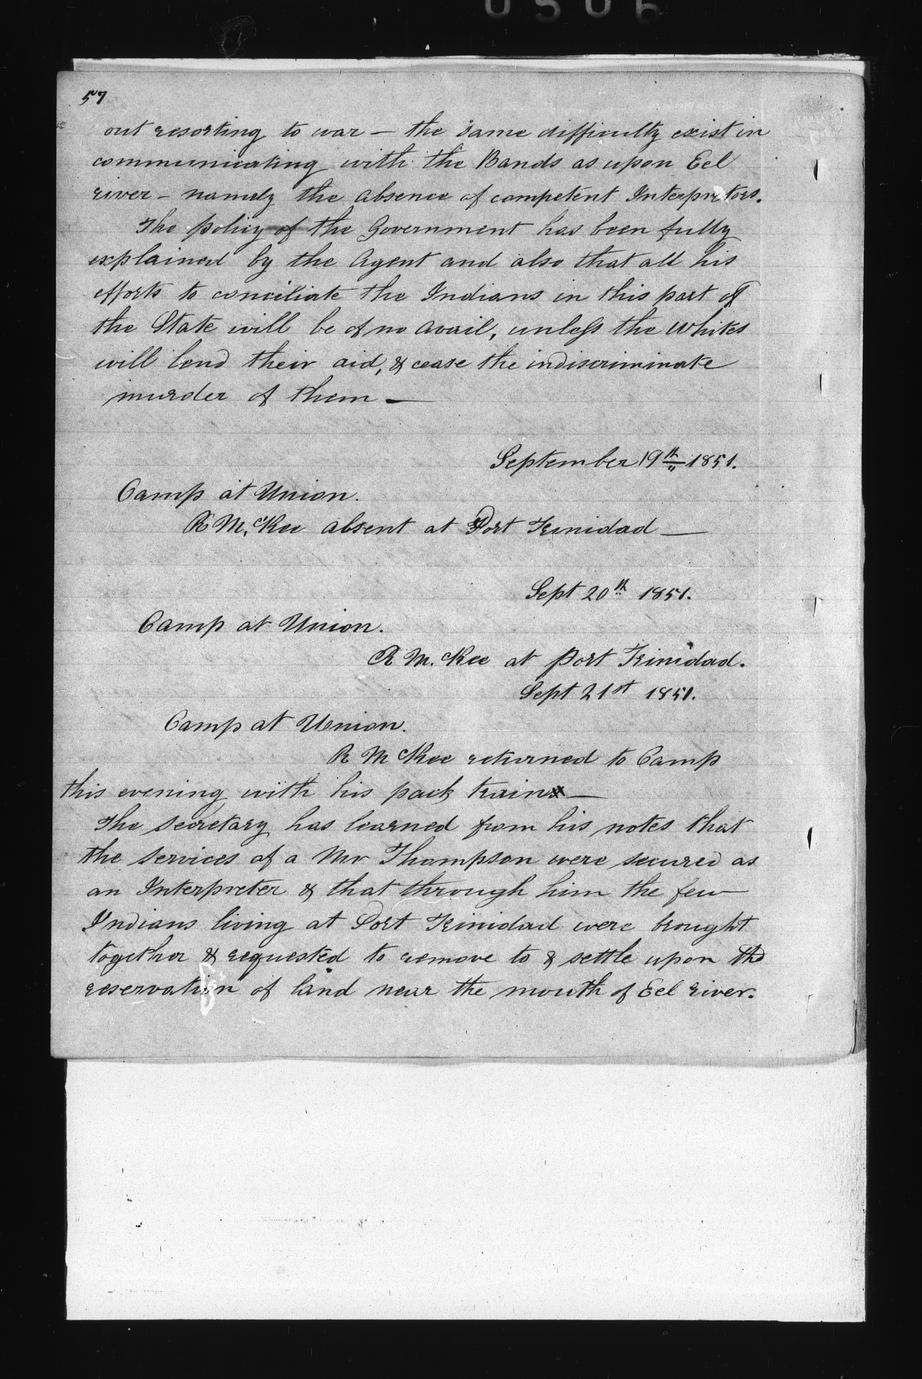 0506
57
out resorting to war — the same difficulty exist in
communicating with the Bands as upon Eel
river – namely the absence of competent Interpretors.
The policy of the Government has been fully
explained by the Agent and also that all his
efforts to conciliate the Indians in this part of
the State will be of no avail, unless the Whites
will lend their aid, & cease the indiscriminate
murder of them —
September 19th 1851.
Camp at Union.
R McKee absent at Port Trinidad —
Sept 20th 1851.
Camp at Union.
R McKee at Port Trinidad.
Sept 21st 1851.
Camp at Union.
R McKee returned to Camp
this evening with his pack train —
The secretary has learned from his notes that
the services of a Mr Thompson were secured as
an Interpreter & that through him the few
Indians living at Port Trinidad were brought
together & requested to remove to & settle upon the
reservation of land near the mouth of Eel river.